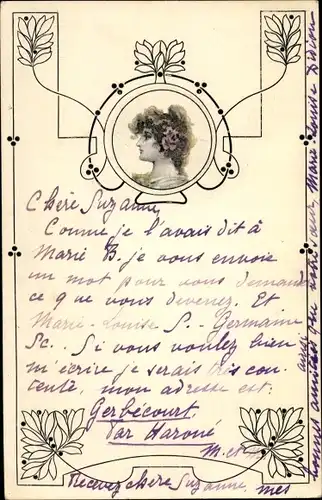 Chère Suzanne,
Comme je l'avais dit à
Marie B. je vous envoie
un mot pour vous demander
ce que vous devenez. Et
Marie-Louise S.. Germaine
Sc.. Si vous voulez bien
m'écrire je serais très con-
tente, mon adresse est:
Gerbécourt
Par Haroué
M.et M.
Recevez chère Suzanne, mes
bonnes amitiés
Marie Louise
aussi